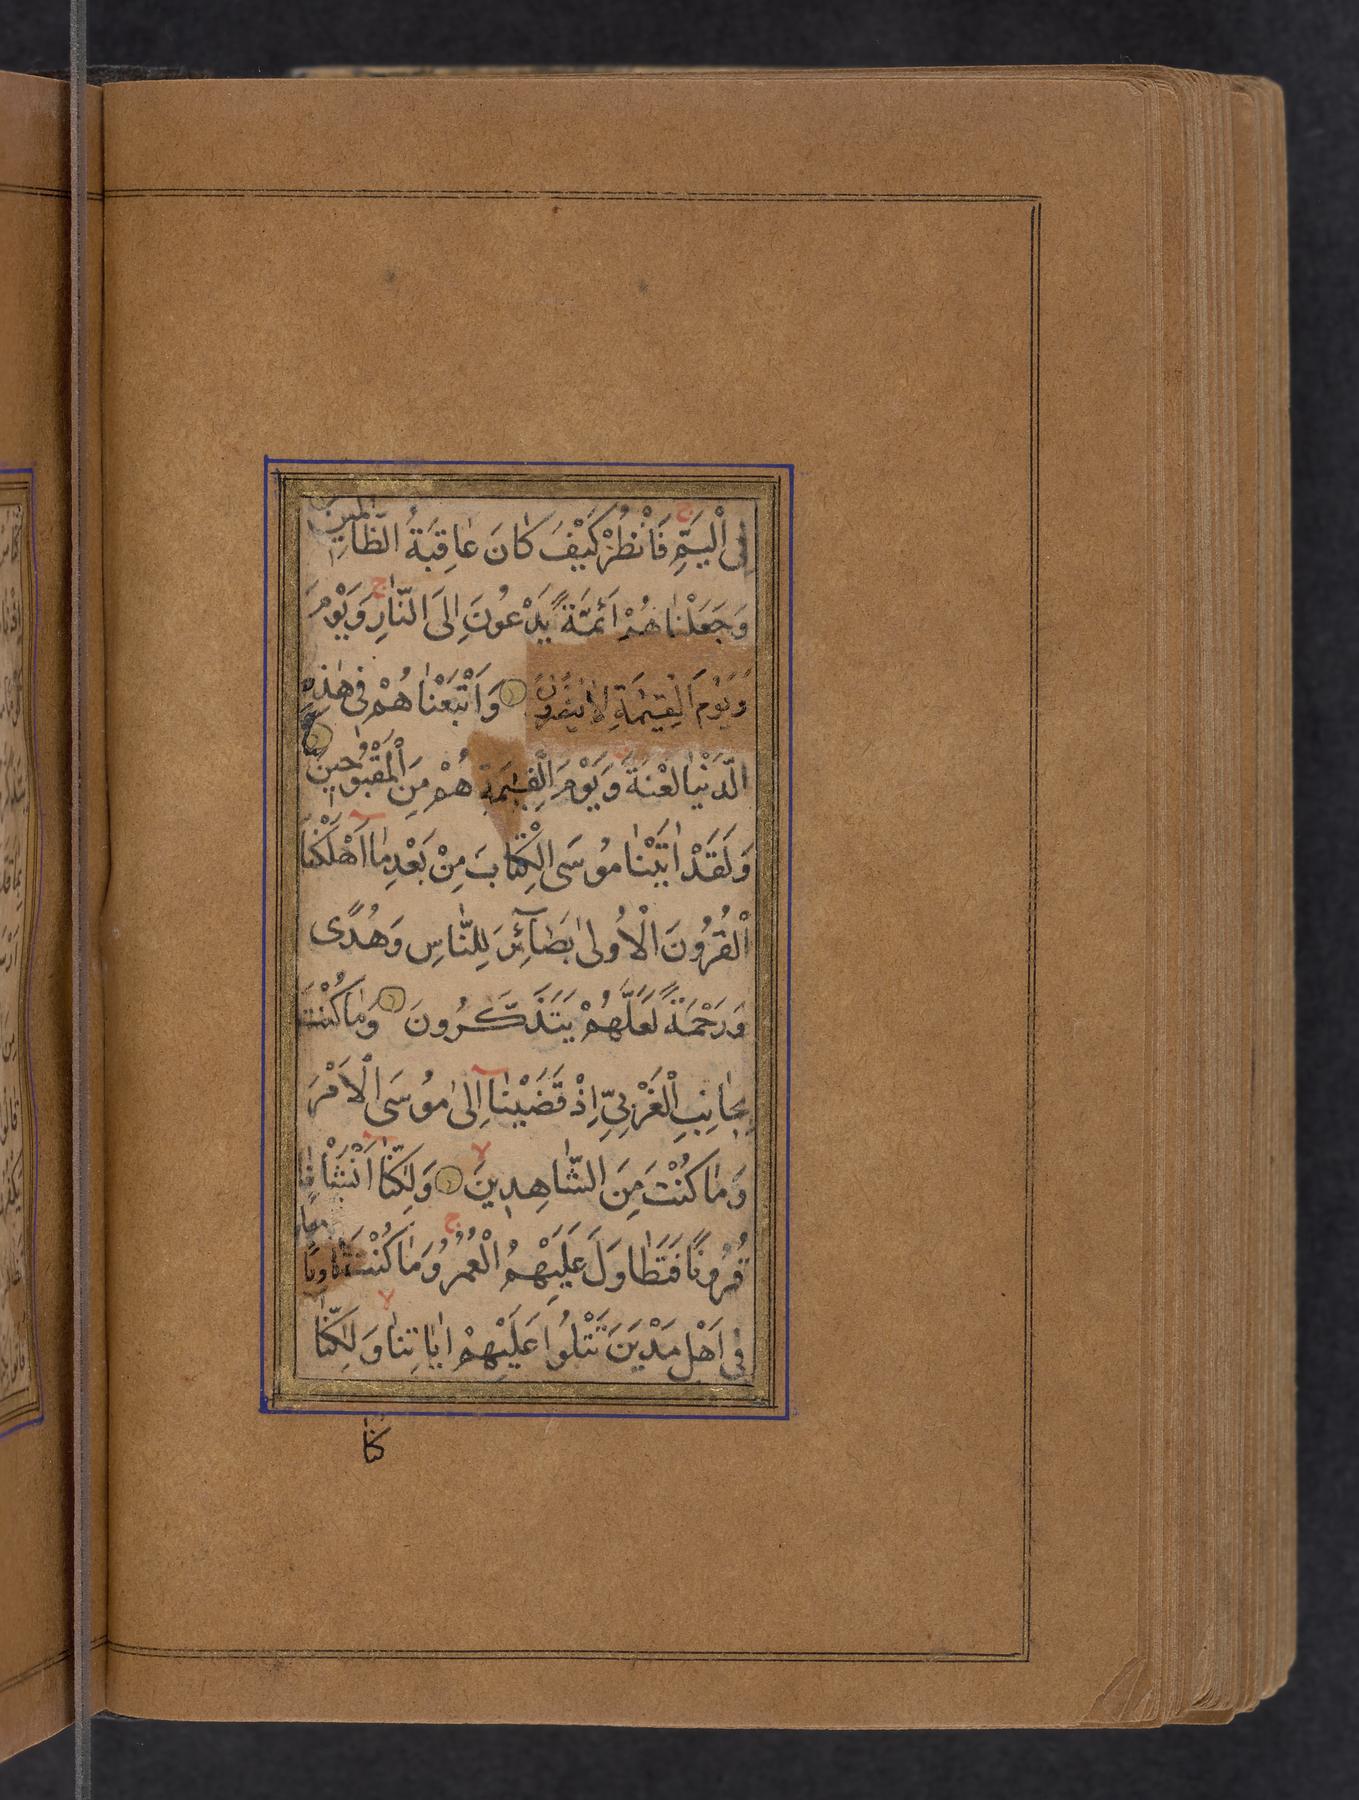 فِى الْيَمِّ فَانْظُرْ كَيْفَ كٰانَ عٰاقِبَةُ الظّٰالِمِينَ
وَجَعَلْنٰاهُمْ اَئِمَّةً يَدْعُونَ اِلَى النّٰارِ وَيَوْمَ
وَيَوْمَ الْقِيٰمَةِ لاٰ يُنْصَرُونَ وَاَتْبَعْنٰاهُمْ فِى هٰذِهِ
الدُّنْيٰا لَعْنَةً وَيَوْمَ الْقِيٰمَةِ هُمْ مِنَ الْمَقْبُوحِينَ
وَلَقَدْ اٰتَيْنٰا مُوسَى الْكِتٰابَ مِنْ بَعْدِ مٰا اَهْلَكْنَا
الْقُرُونَ الْاُولىٰ بَصَآئِرَ لِلنّٰاسِ وَهُدًى
وَرَحْمَةً لَعَلَّهُمْ يَتَذَكَّرُونَ وَمٰا كُنْتَ
بِجٰانِبِ الْغَرْبِيِّ اِذْ قَضَيْنٰا اِلىٰ مُوسَى الْاَمْرَ
وَمٰا كُنْتَ مِنَ الشّٰاهِدِينَ وَلٰكِنّٰا اَنْشَاْنٰا
قُرُونًا فَتَطٰاوَلَ عَلَيْهِمُ الْعُمُرُ وَمٰا كُنْتَ ثٰاوِيًا
فِى اَهْلِ مَدْيَنَ تَتْلُوا عَلَيْهِمْ اٰيٰاتِنٰا وَلٰكِنّٰا
كنّٰا